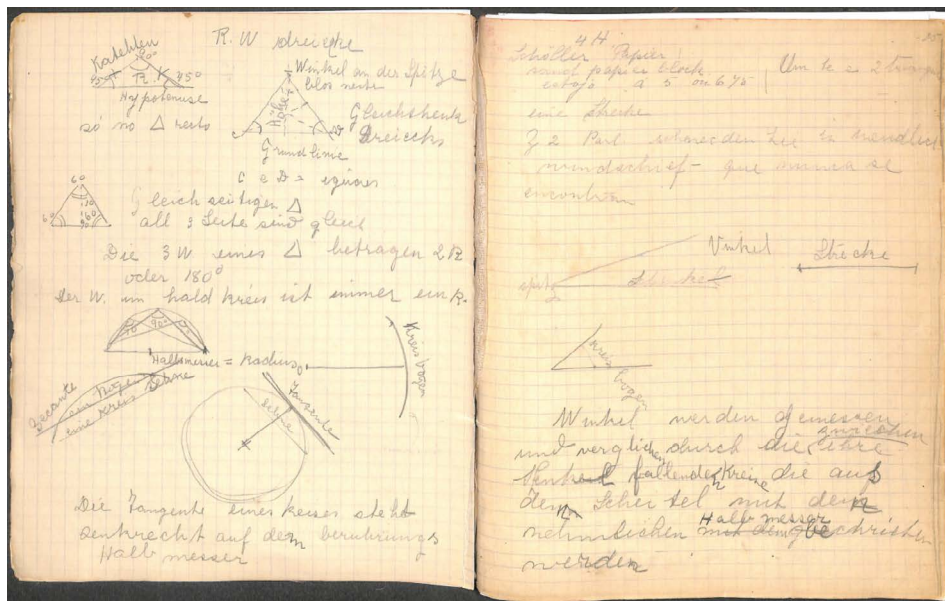 R. W dreiecke
Katehten
90°
R.
45°
Hypotenuse
só no △ reto
Winkel an der Spitze
Höhe
Gleichshenk
Dreiecks
Grundlinie
C e D = iguaes
60°
60
60°
Gleich seitigen △
all 3 Seite sind gleich
Die 3 W eines △ betragen 2 R
oder 180°
Der W. im halb kreis ist immer ein R.
90°
Halbmesser = Radius
Kreisbogen
Secante
ein Bogen
eine Kreis Sehne
Sehne
Tangente
Die Tangente eines keises steht
senkrecht auf dem beruhrungs
Halb messer
4 H
Schöller Papier
papier block
estojo a 5 ou 6 $
Um te e 2
eine Strecke
2 Parl.
windschief - que nunca se
encontram
Vinkel
Strecke
spitz
Kreis bogen
Winkel werden gemessen
und verglichen durch die zwischen ihre
Schenkel fallenden Kreise die aus
dem Scheitel mit dem
nehmlichen Halb messer beschriben
werden